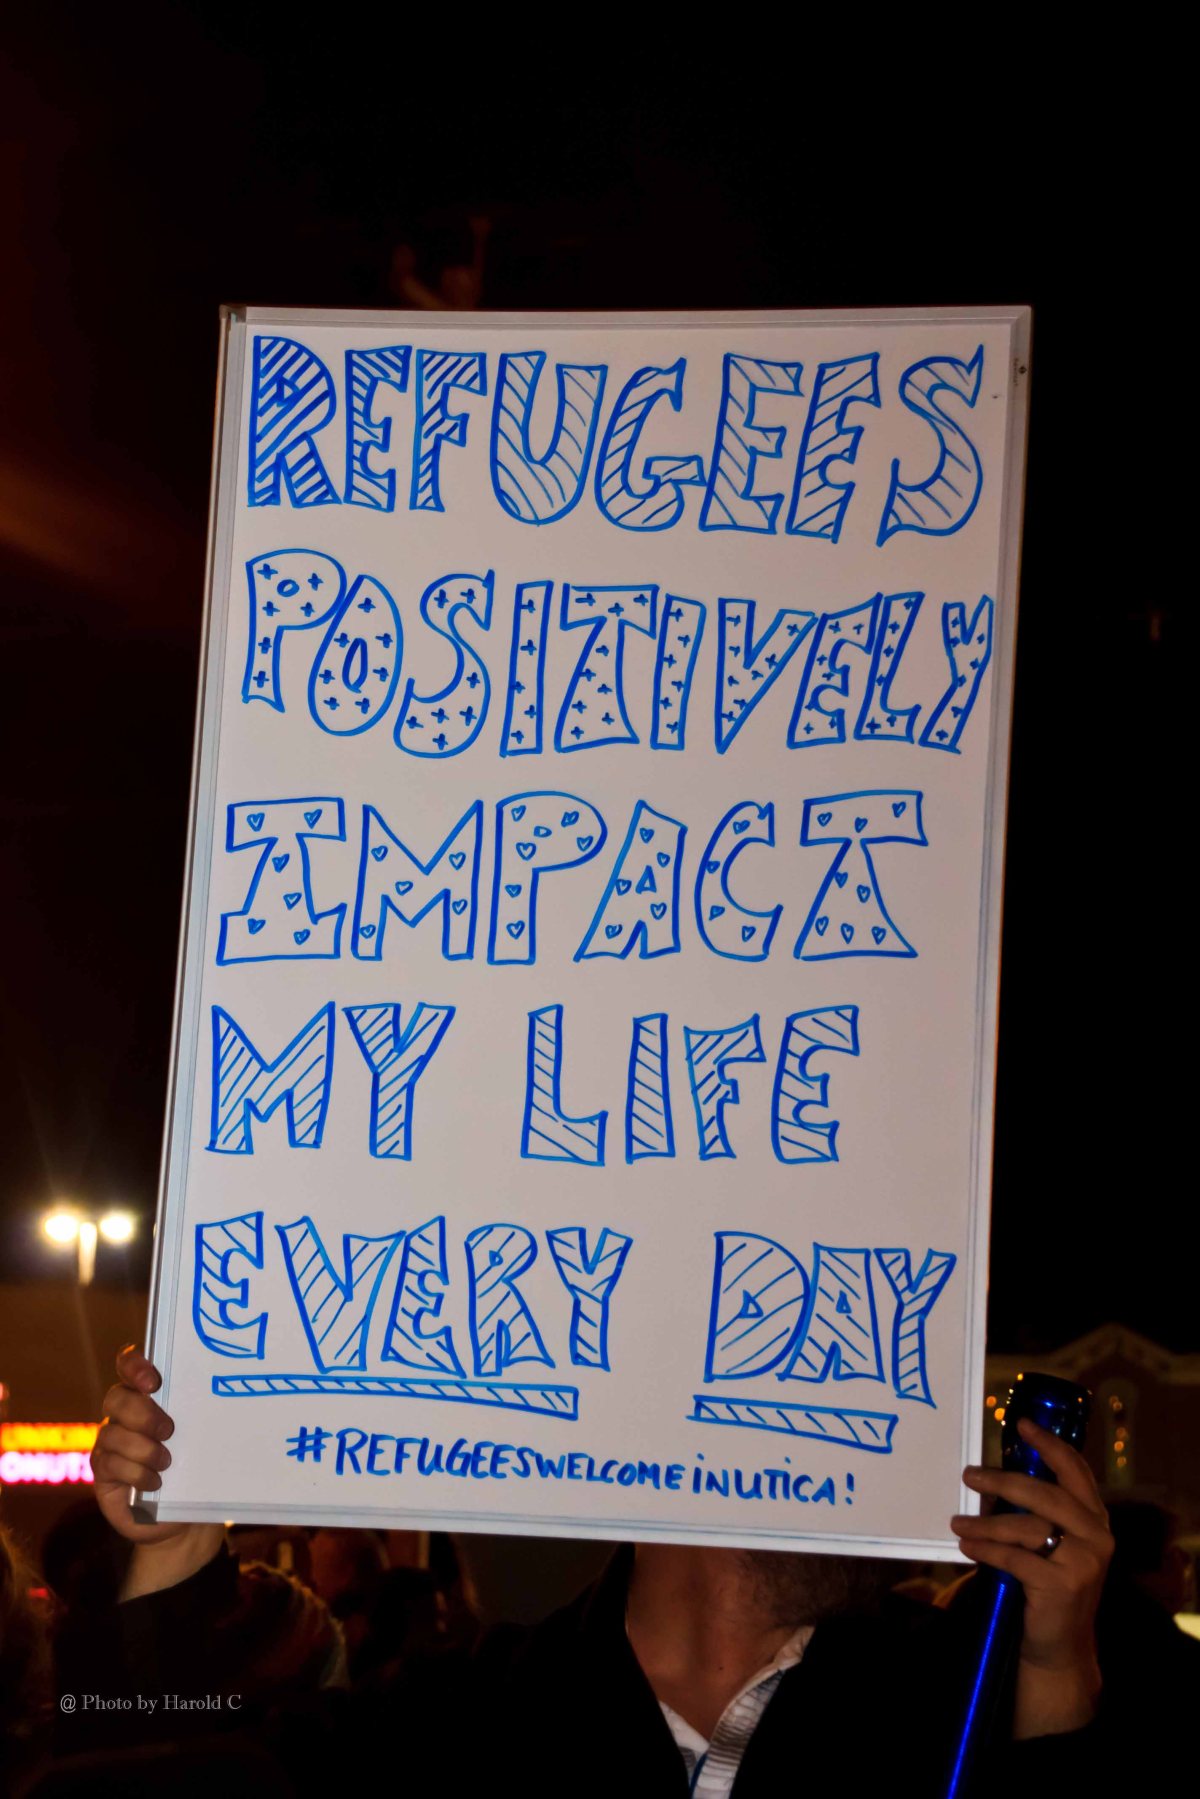 REFUGEES
POSITIVELY
IMPACT
MY LIFE
EVERY DAY
#REFUGEESWELCOMEINUTICA!
@ Photo by Harold C